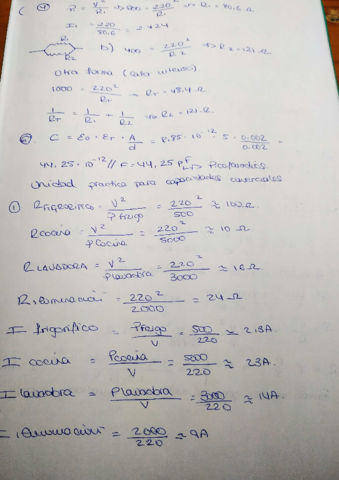 ④ R = V²/R₁ ⇒ 600 = 220²/R₁ ⇒ R₁ = 80.6 Ω
I₁ = 220/80.6 = 2.72A
R₁ R₂ b) 400 = 220²/R₂ ⇒ R₂ = 121 Ω
Otra forma (calor intenso)
1000 = 220²/Rт ⇒ Rт = 48,4 Ω
1/Rт = 1/R₁ + 1/R₂ ⇒ R₂ = 121 Ω
C = ε₀ · εr · A/d = 8,85 · 10⁻¹² · 5 · 0.002/0.002 =
44,25 · 10⁻¹² // F = 44,25 pF ↳ Picofaradios
Unidad practica para capacidades comerciales
① R FRIGORIFICO = V²/P frigo = 220²/500 ≈ 100 Ω
R cocina = V²/P cocina = 220²/5000 ≈ 10 Ω
R LAVADORA = V²/P lavadora = 220²/3000 ≈ 16 Ω
R iluminación = 220²/2000 = 24 Ω
I frigorifico = P frigo/V = 500/220 ≈ 2.3A
I cocina = P cocina/V = 5000/220 ≈ 23A
I lavadora = P lavadora/V = 3000/220 ≈ 14A
I iluminación = 2000/220 ≈ 9A